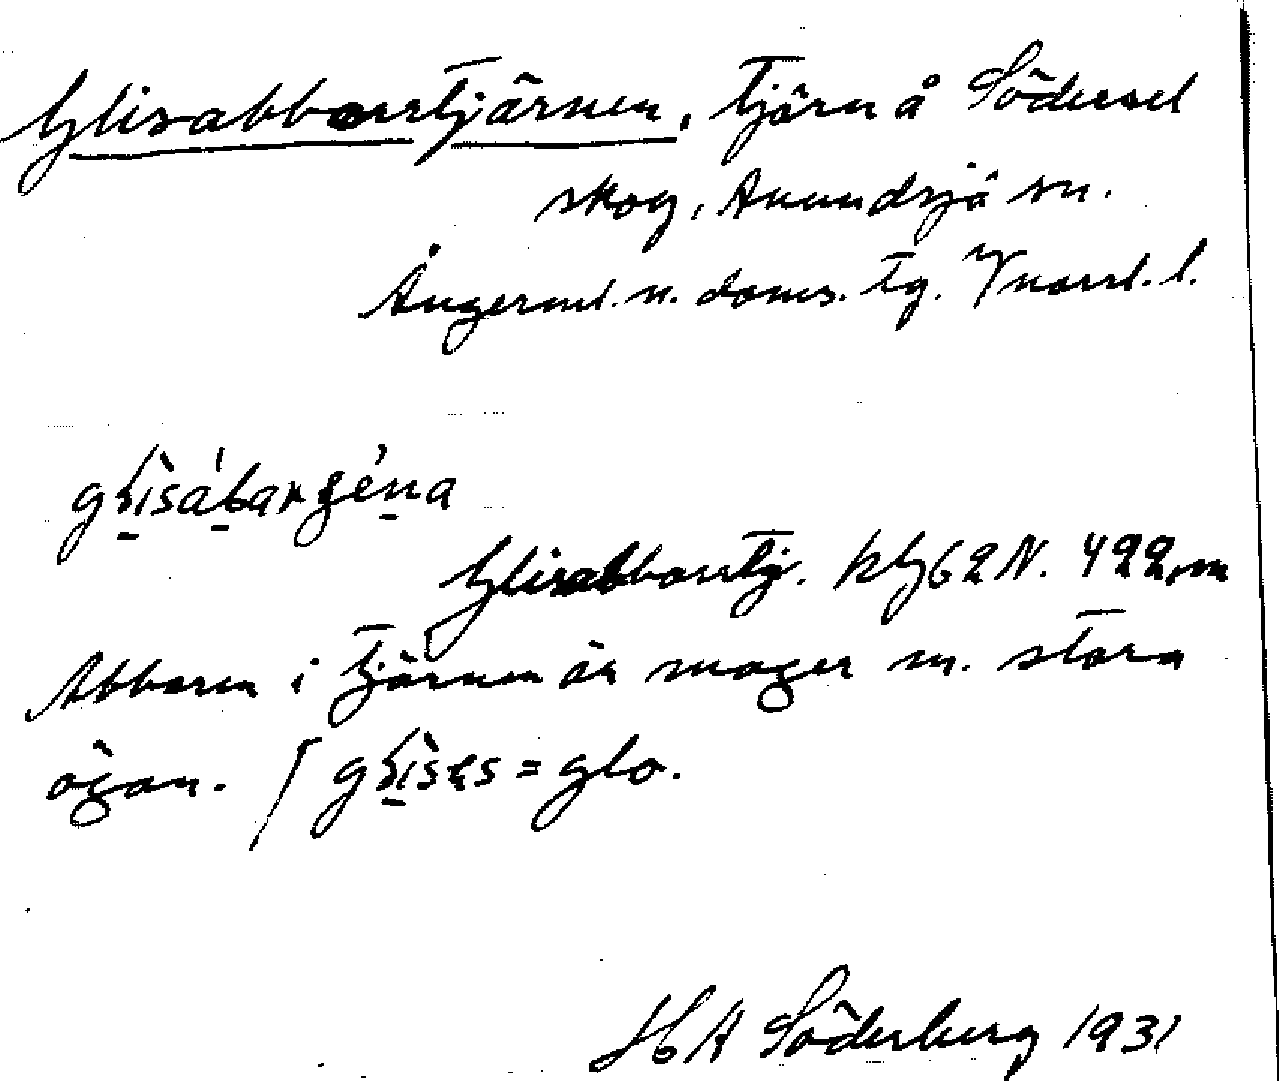 Glisabborrtjärnen, tjärn å Södersel
skog, Anundsjö sn.
Ångerml. n. doms. tg. Vnorrl. l.
Glisabborrtj. kbl 62 N. 422,m
Abboren i tjärnen är mager m. stora
ögan. = glo.
H A Söderberg 1931